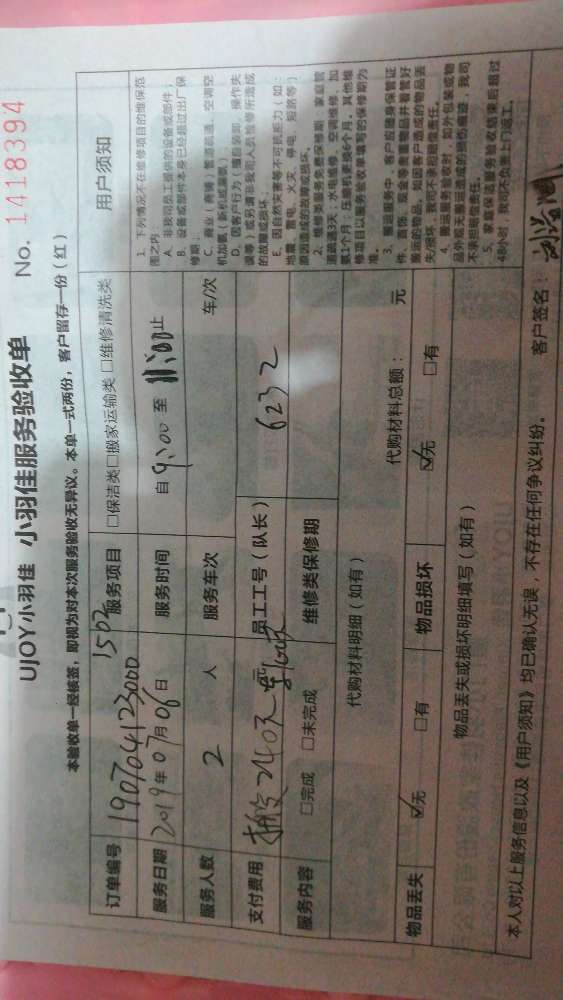 UJOY小羽佳 小羽佳服务验收单 No. 1418394
本验收单一经核签，即视为对本次服务验收无异议。本单一式两份，客户留存一份（红）
订单编号 190704123000 1502
服务项目 □保洁类□搬家运输类 □维修清洗类
服务日期 2019年07月06日 服务时间 自 9:00 至 11:00止
服务人数 2 人 服务车次 车/次
支付费用 240元 员工工号（队长） 6232
服务内容 □完成 □未完成 维修类保修期
代购材料明细（如有） 代购材料总额： 元
物品丢失 ☑无 □有 物品损坏 ☑无 □有
物品丢失或损坏明细填写（如有）
用户须知
1. 下列情况不在维修项目的维保范
围之内：
A. 非我司员工提供的设备或部件；
B. 设备或部件本身已经超过出厂保
修期；
C. 商业（商铺）管道疏通、空调空
D. 因客户行为（擅自装卸、操作失
误等）或另请非我司人员检修所造成
的故障或损坏；
E. 因自然灾害等不可抗拒力（如：
地震、雷电、火灾、停电、短路等）
原因造成的故障或损坏。
2. 维修类服务免费保修期：家庭管
道疏通3天；水电维修、空调维修、加
氨1个月；压缩机更换6个月。其他维
修项目以服务验收单填写的保修期为
准。
3. 搬运服务中，客户应随身保管证
件、首饰、现金等贵重物品并看管好
搬运的物品，如因客户造成的物品丢
失/损坏，我司不承担赔偿责任。
4. 搬运服务验收时，如外包装或物
品外观无搬运造成的损伤痕迹，我司
不承担赔偿责任。
5. 家庭保洁服务验收结束后超过
48小时，我司不负责上门返工。
本人对以上服务信息以及《用户须知》均已确认无误，不存在任何争议纠纷。 客户签名：